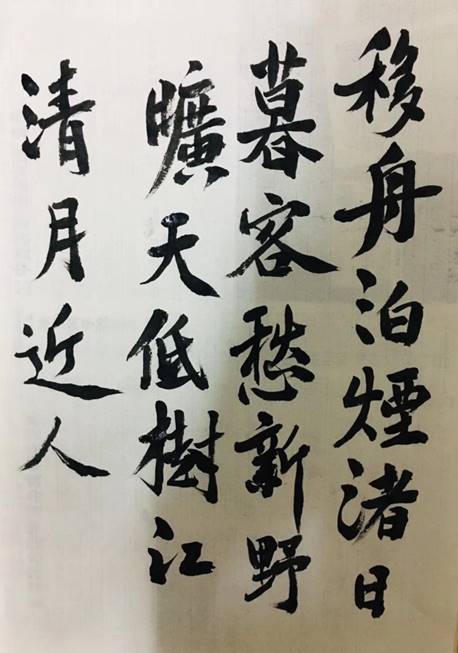 移舟泊煙渚日
暮客愁新野
曠天低樹江
清月近人